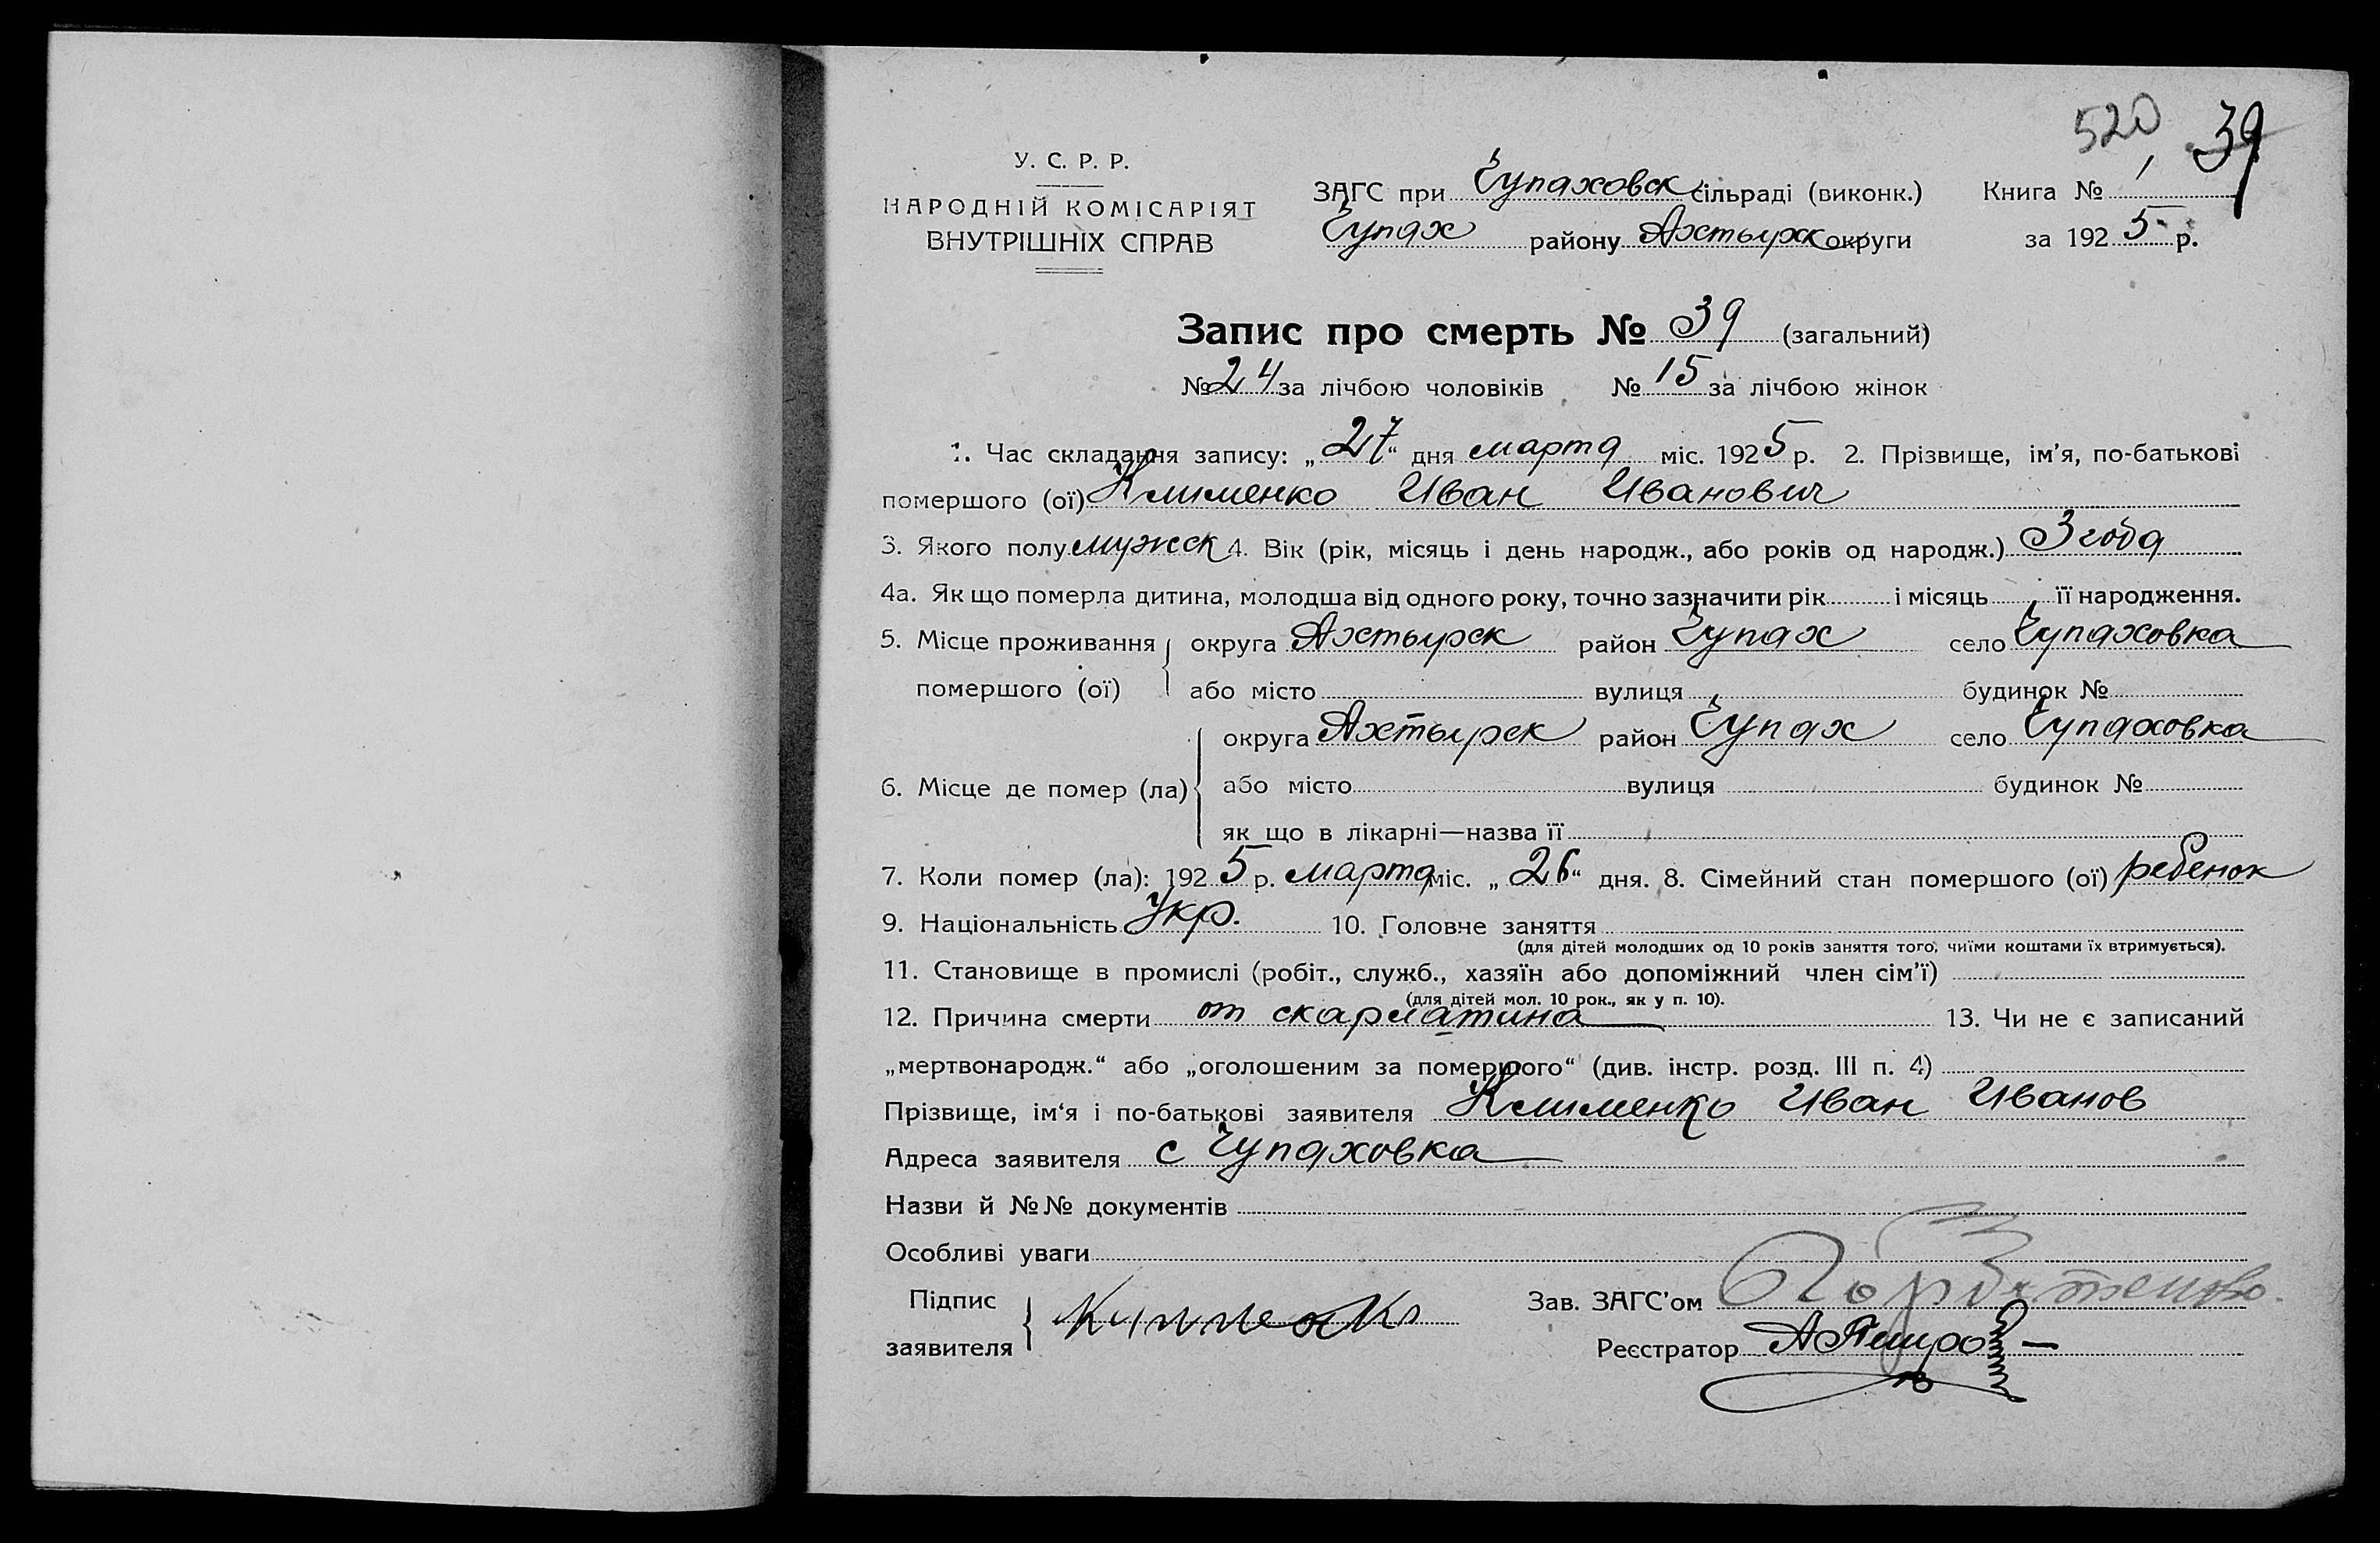 520 39
У. С. Р. Р.
НАРОДНІЙ КОМІСАРІЯТ
ВНУТРІШНІХ СПРАВ
ЗАГС при Чупаховск сільраді (виконк.) Книга № 1
Чупах району Ахтырск округи за 192 5 р.
Запис про смерть № 39 (загальний)
№ 24 за лічбою чоловіків № 15 за лічбою жінок
1. Час складання запису: „ 27 “ дня марта міс. 192 5 р. 2. Прізвище, ім’я, по-батькові
помершого (ої) Клименко Иван Иванович
3. Якого полу мужск 4. Вік (рік, місяць і день народж., або років од народж.) 3 года
4а. Як що померла дитина, молодша від одного року, точно зазначити рік і місяць її народження.
5. Місце проживання округа Ахтырск район Чупах село Чупаховка
помершого (ої) або місто вулиця будинок №
округа Ахтырск район Чупах село Чупаховка
6. Місце де помер (ла) або місто вулиця будинок №
як що в лікарні—назва її
7. Коли помер (ла): 192 5 р. марта міс. „ 26 “ дня. 8. Сімейний стан помершого (ої) ребенок
9. Національність Укр. 10. Головне заняття
(для дітей молодших од 10 років заняття того, чиїми коштами їх втримується).
11. Становище в промислі (робіт., служб., хазяїн або допоміжний член сім’ї)
(для дітей мол. 10 рок., як у п. 10).
12. Причина смерти от скарлатина 13. Чи не є записаний
„мертвонародж.“ або „оголошеним за помершого“ (див. інстр. розд. III п. 4)
Прізвище, ім‘я і по-батькові заявителя Клименко Иван Иванов
Адреса заявителя с Чупаховка
Назви й №№ документів
Особливі уваги
Підпис
заявителя
Зав. ЗАГС’ом
Реєстратор